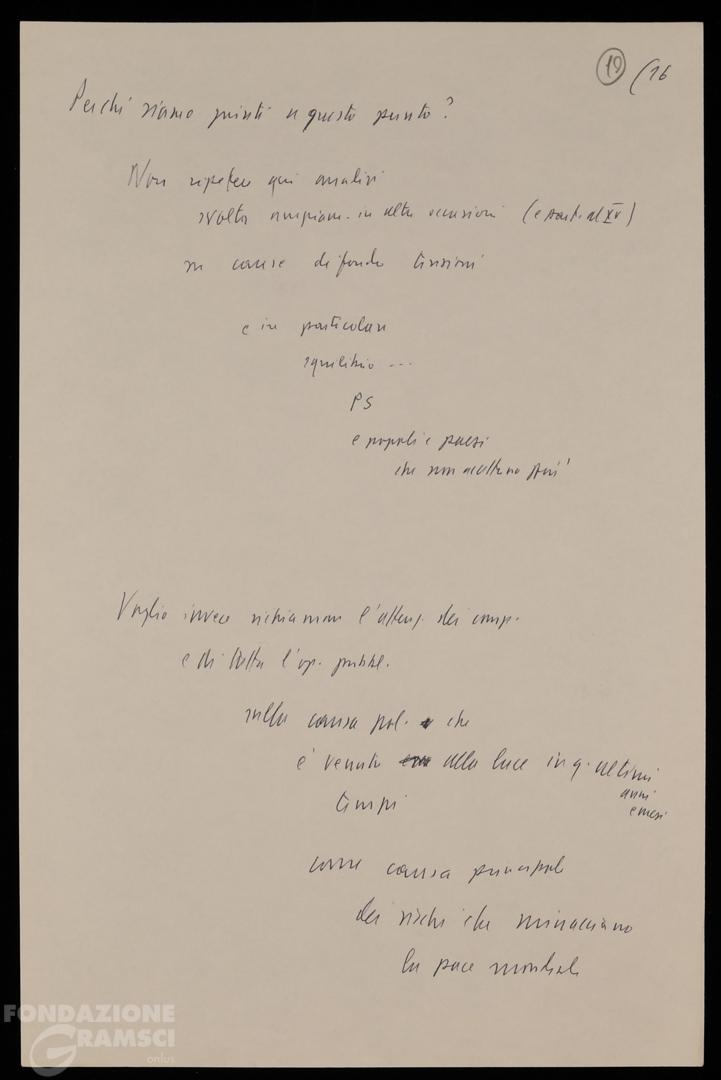 19 (16
Perché siamo giunti a questo punto?
Non ripetere qui analisi
svolta ampiam. in altre occasioni (e anche al XV)
su cause di fondo tensioni
e in particolare
squilibrio ...
PS
e popoli e paesi
che non accettano più
Voglio invece richiamare l'attenz. dei comp.
e di tutta l'op. pubbl.
sulla causa pol. che
è venuta alla luce in q. ultimi
anni
e mesi
tempi
come causa principale
dei rischi che minacciano
la pace mondiale
FONDAZIONE
GRAMSCI
onlus